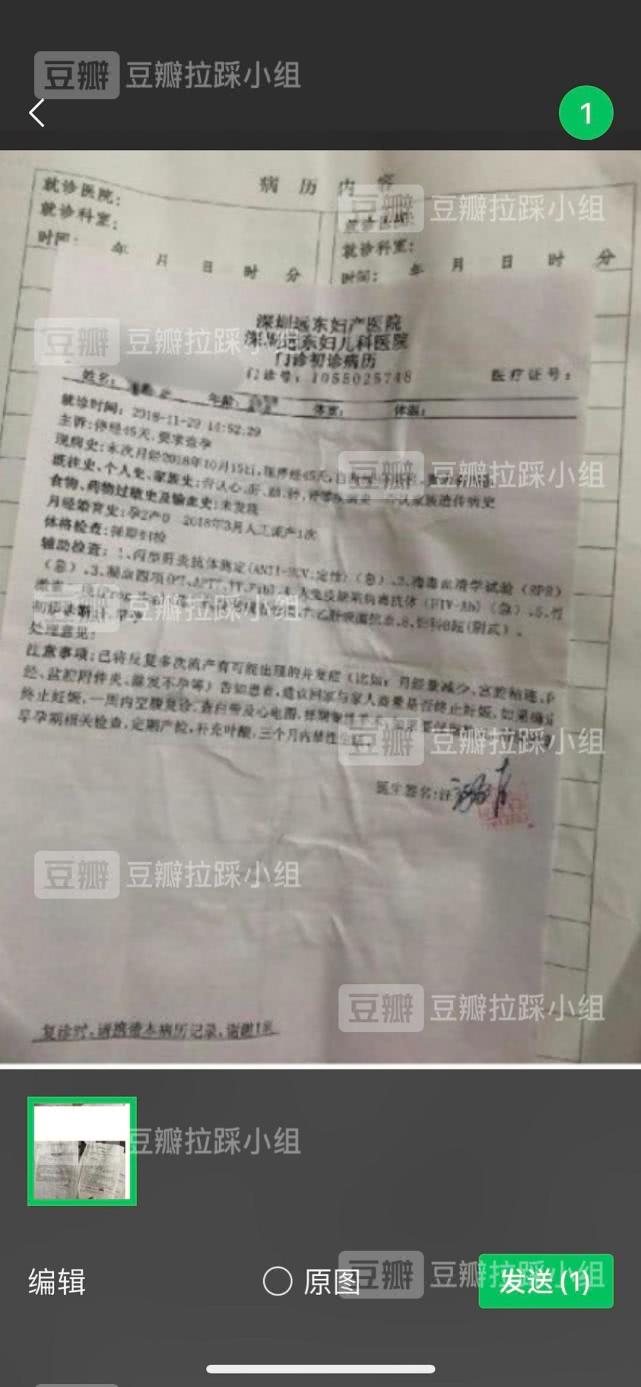 豆瓣 豆瓣拉踩小组
1
病历内容
就诊医院:
就诊科室:
时间: 年 月 日 时 分
豆瓣 豆瓣拉踩小组
就诊科室:
时间: 年 月 日 时 分
深圳远东妇产医院
深圳远东妇儿科医院
豆瓣 豆瓣拉踩小组
门诊初诊病历
门诊号: 1055025748 医疗证号:
姓名: 年龄: 体重: 体温:
就诊时间: 2018-11-29 14:52:29
主诉:停经45天,要求查孕
现病史:末次月经2018年10月15日,现停经45天,
豆瓣 豆瓣拉踩小组
既往史、个人史、家族史:否认心、肝、 家族遗传病史
食物、药物过敏史及输血史:未发现
月经婚育史:孕2产0 2018年3月人工流产1次
体格检查:
辅助检查: 1、丙型肝炎抗体测定(ANTI-HCV:定性)(急)、2、梅毒血清学试验(RPR)
(急)、3、凝血四项(PT、APTT、TT、Fib)、4、人免疫缺陷病毒抗体(HIV-Ab)(急)、5、
豆瓣 豆瓣拉踩小组
初步诊断:
处理意见:
注意事项:已将反复多次流产有可能出现的并发症(比如:月经量减少、宫腔粘连、
经、盆腔附件炎、继发不孕等)告知患者,建议回家与家人商量是否终止妊娠,如果确定
终止妊娠,一周内空腹复诊,查白带及心电图,
豆瓣 豆瓣拉踩小组
早孕期相关检查,定期产检,补充叶酸,三个月内禁性生活。
医生签名:
豆瓣 豆瓣拉踩小组
豆瓣 豆瓣拉踩小组
复诊时,请携带本病历记录,谢谢!
豆瓣拉踩小组
编辑
原图
豆瓣 豆瓣拉踩小组
发送(1)